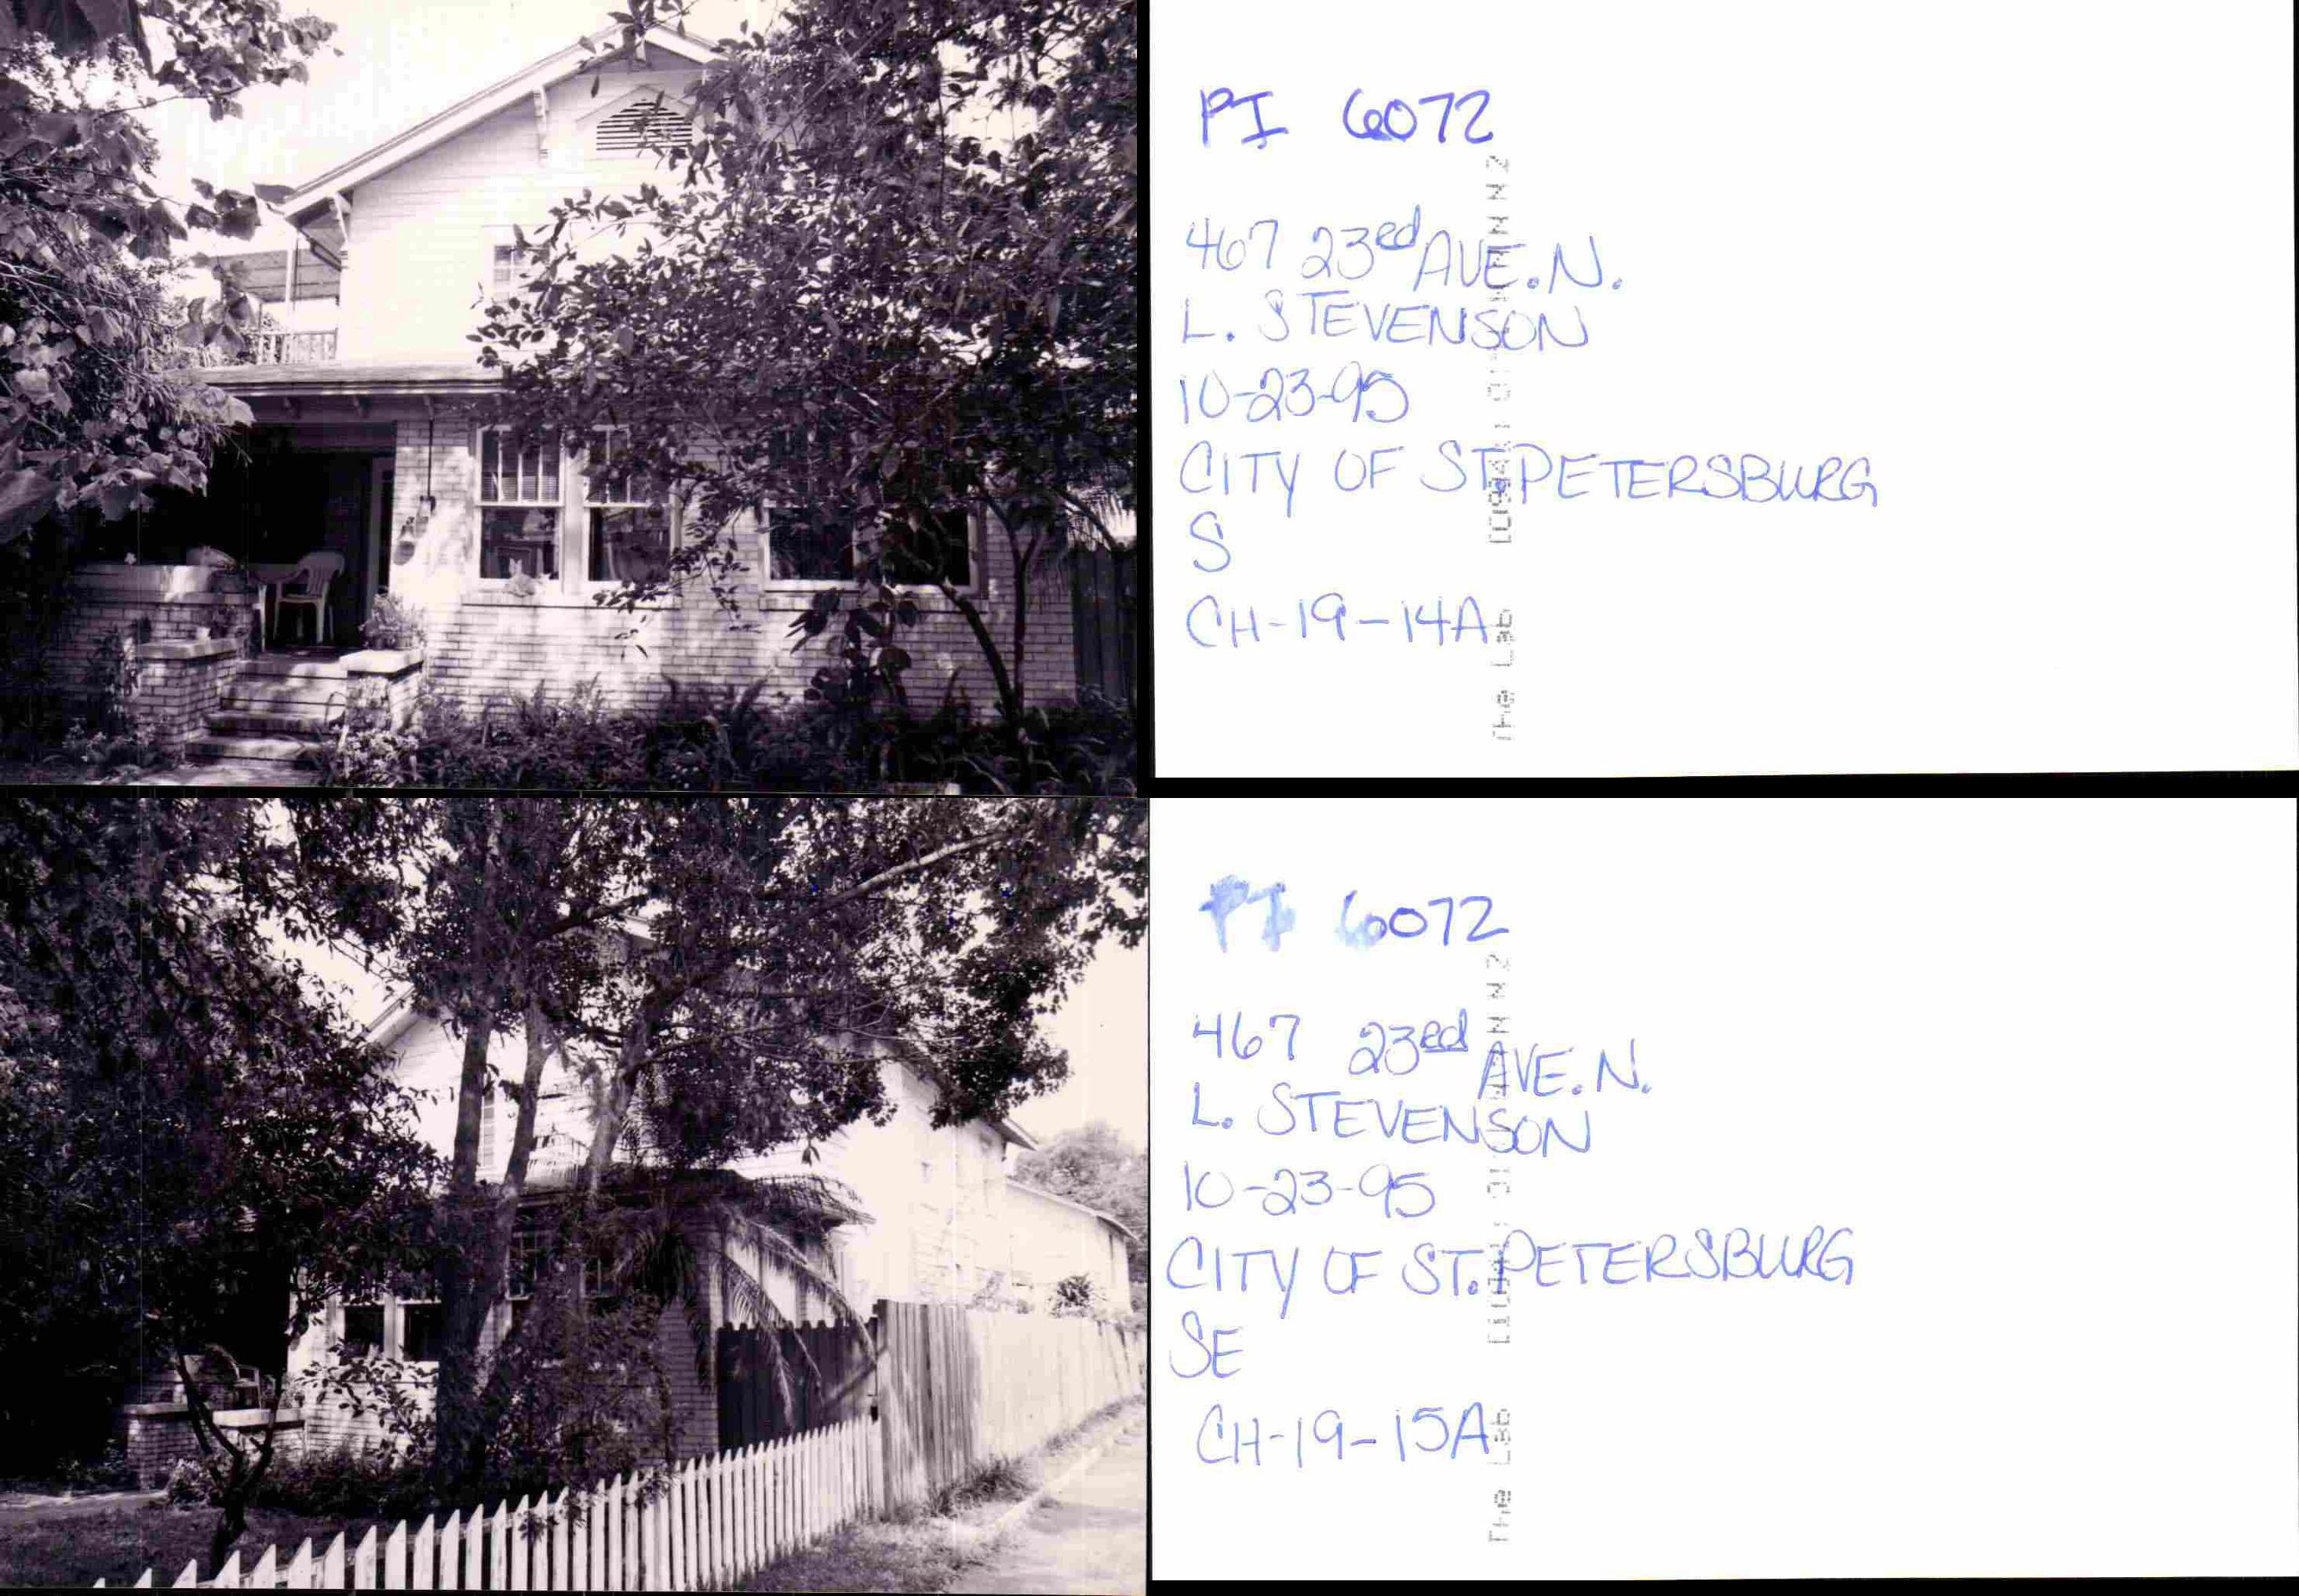 PI 6072
467 23ed AVE. N.
L. STEVENSON
10-23-95
CITY OF ST. PETERSBURG
S
CH-19-14A
The Lab
PI 6072
467 23ed AVE. N.
L. STEVENSON
10-23-95
CITY OF ST. PETERSBURG
SE
CH-19-15A
The Lab